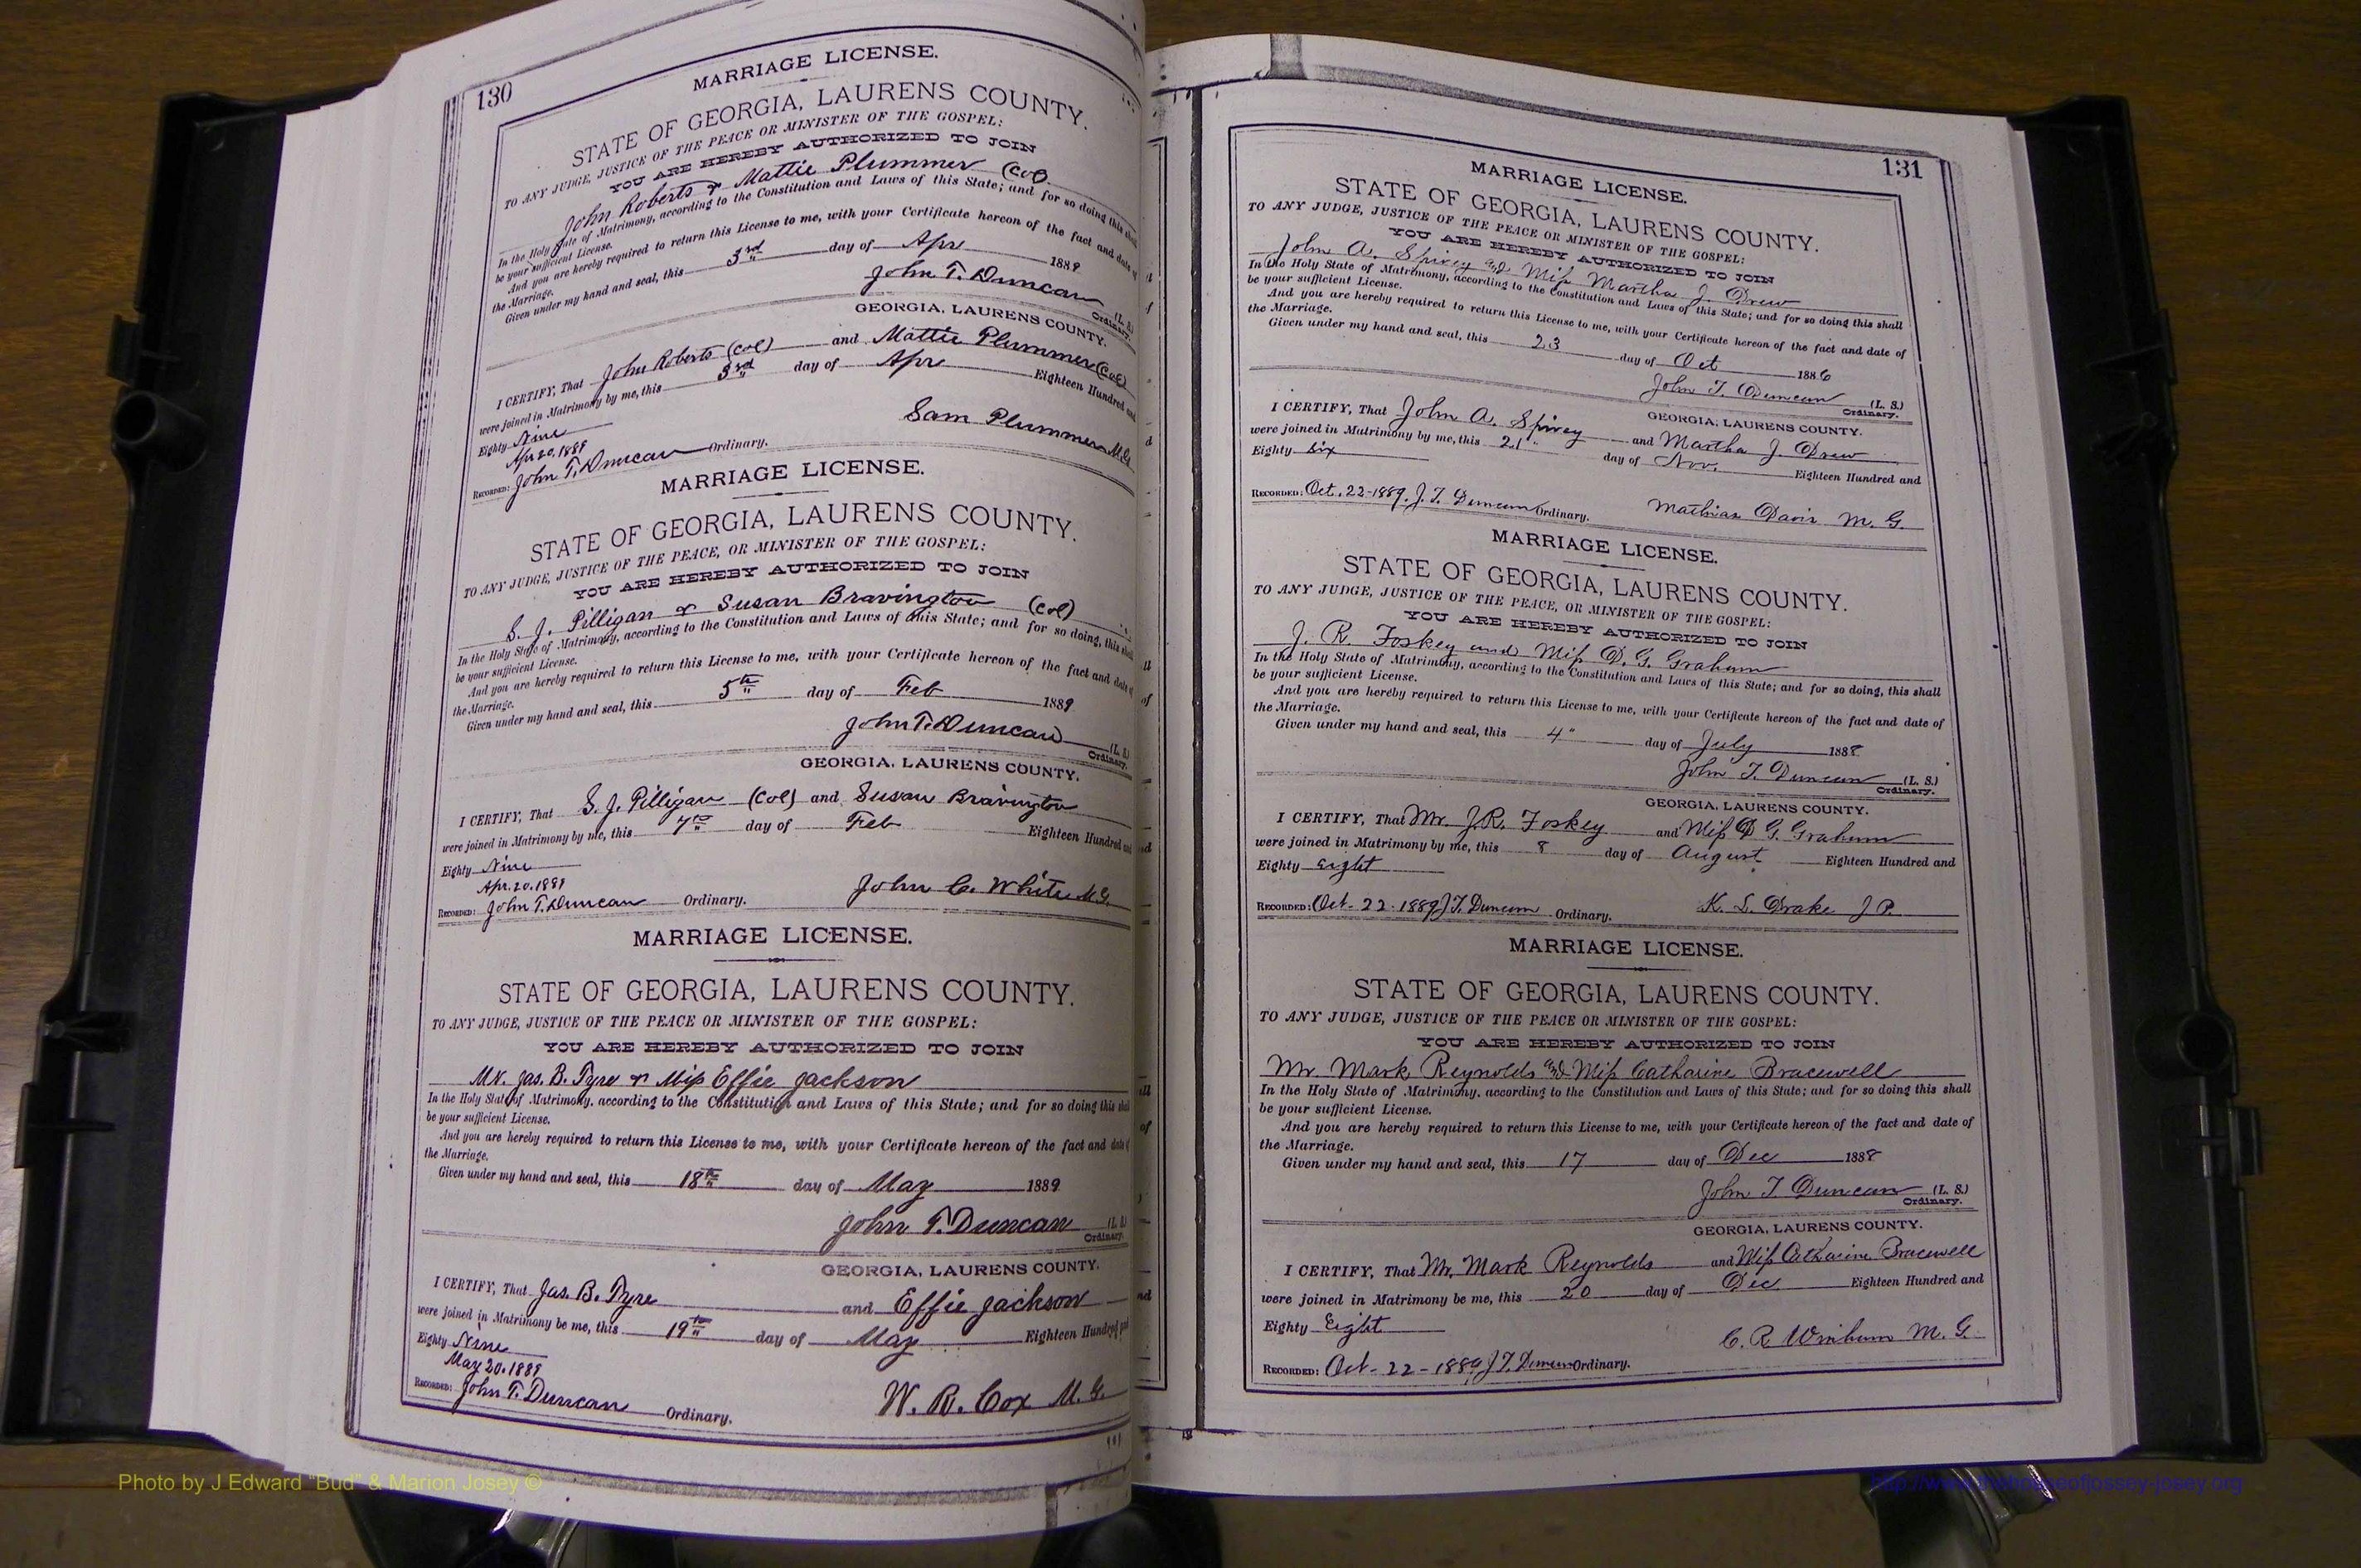 130
MARRIAGE LICENSE.
STATE OF GEORGIA, LAURENS COUNTY.
TO ANY JUDGE, JUSTICE OF THE PEACE OR MINISTER OF THE GOSPEL:
YOU ARE HEREBY AUTHORIZED TO JOIN
John Roberts & Mattie Plummer (Col)
In the Holy State of Matrimony, according to the Constitution and Laws of this State; and for so doing this shall
be your sufficient License.
And you are hereby required to return this License to me, with your Certificate hereon of the fact and date of
the Marriage.
Given under my hand and seal, this 3rd day of Apr 1889
John T. Duncan (L. S.)
Ordinary.
GEORGIA, LAURENS COUNTY.
I CERTIFY, That John Roberts (Col) and Mattie Plummer (Col)
were joined in Matrimony by me, this 3rd day of Apr Eighteen Hundred and
Eighty Nine
Apr 20, 1889
Sam Plummer M.G.
RECORDED: John T. Duncan Ordinary.
MARRIAGE LICENSE.
STATE OF GEORGIA, LAURENS COUNTY.
TO ANY JUDGE, JUSTICE OF THE PEACE, OR MINISTER OF THE GOSPEL:
YOU ARE HEREBY AUTHORIZED TO JOIN
S. J. Pilligan & Susan Bravington (Col)
In the Holy State of Matrimony, according to the Constitution and Laws of this State; and for so doing, this shall
be your sufficient License.
And you are hereby required to return this License to me, with your Certificate hereon of the fact and date of
the Marriage.
Given under my hand and seal, this 5th day of Feb 1889
John T. Duncan (L. S.)
Ordinary.
GEORGIA, LAURENS COUNTY.
I CERTIFY, That S. J. Pilligan (Col) and Susan Bravington
were joined in Matrimony by me, this 7th day of Feb Eighteen Hundred and
Eighty Nine
Apr. 20. 1889
RECORDED: John T. Duncan Ordinary. John C. White M.G.
MARRIAGE LICENSE.
STATE OF GEORGIA, LAURENS COUNTY.
TO ANY JUDGE, JUSTICE OF THE PEACE OR MINISTER OF THE GOSPEL:
YOU ARE HEREBY AUTHORIZED TO JOIN
Mr. Jas. B. Tyre & Miss Effie Jackson
In the Holy State of Matrimony, according to the Constitution and Laws of this State; and for so doing this shall
be your sufficient License.
And you are hereby required to return this License to me, with your Certificate hereon of the fact and date of
the Marriage.
Given under my hand and seal, this 18th day of May 1889
John T. Duncan (L. S.)
Ordinary.
GEORGIA, LAURENS COUNTY.
I CERTIFY, That Jas. B. Tyre and Effie Jackson
were joined in Matrimony be me, this 19th day of May Eighteen Hundred and
Eighty Nine
May 20. 1889
RECORDED: John T. Duncan Ordinary. W. R. Cox M.G.
131
MARRIAGE LICENSE.
STATE OF GEORGIA, LAURENS COUNTY.
TO ANY JUDGE, JUSTICE OF THE PEACE OR MINISTER OF THE GOSPEL:
YOU ARE HEREBY AUTHORIZED TO JOIN
John A. Spivey and Miss Martha J. Drew
In the Holy State of Matrimony, according to the Constitution and Laws of this State; and for so doing this shall
be your sufficient License.
And you are hereby required to return this License to me, with your Certificate hereon of the fact and date of
the Marriage.
Given under my hand and seal, this 23 day of Oct 1886
John T. Duncan (L. S.)
Ordinary.
GEORGIA, LAURENS COUNTY.
I CERTIFY, That John A. Spivey and Martha J. Drew
were joined in Matrimony by me, this 21" day of Nov. Eighteen Hundred and
Eighty Six
RECORDED: Oct. 22-1889. J. T. Duncan Ordinary. Mathias Davis M. G.
MARRIAGE LICENSE.
STATE OF GEORGIA, LAURENS COUNTY.
TO ANY JUDGE, JUSTICE OF THE PEACE, OR MINISTER OF THE GOSPEL:
YOU ARE HEREBY AUTHORIZED TO JOIN
J. R. Foskey and Miss D. G. Graham
In the Holy State of Matrimony, according to the Constitution and Laws of this State; and for so doing, this shall
be your sufficient License.
And you are hereby required to return this License to me, with your Certificate hereon of the fact and date of
the Marriage.
Given under my hand and seal, this 4" day of July 1888
John T. Duncan (L. S.)
Ordinary.
GEORGIA, LAURENS COUNTY.
I CERTIFY, That Mr. J. R. Foskey and Miss D G. Graham
were joined in Matrimony by me, this 8 day of August Eighteen Hundred and
Eighty Eight
RECORDED: Oct- 22- 1889 J T. Duncan Ordinary. K. L. Drake J P.
MARRIAGE LICENSE.
STATE OF GEORGIA, LAURENS COUNTY.
TO ANY JUDGE, JUSTICE OF THE PEACE OR MINISTER OF THE GOSPEL:
YOU ARE HEREBY AUTHORIZED TO JOIN
Mr. Mark Reynolds and Miss Catharine Bracewell
In the Holy State of Matrimony, according to the Constitution and Laws of this State; and for so doing this shall
be your sufficient License.
And you are hereby required to return this License to me, with your Certificate hereon of the fact and date of
the Marriage.
Given under my hand and seal, this 17 day of Dec 1888
John T Duncan (L. S.)
Ordinary.
GEORGIA, LAURENS COUNTY.
I CERTIFY, That Mr. Mark Reynolds and Miss Catharine Bracewell
were joined in Matrimony be me, this 20 day of Dec Eighteen Hundred and
Eighty Eight
C. R. Winham M. G.
RECORDED: Oct- 22-1889 J T. Duncan Ordinary.
Photo by J Edward "Bud" & Marion Josey ©
http://www.thehouseofjossey-josey.org